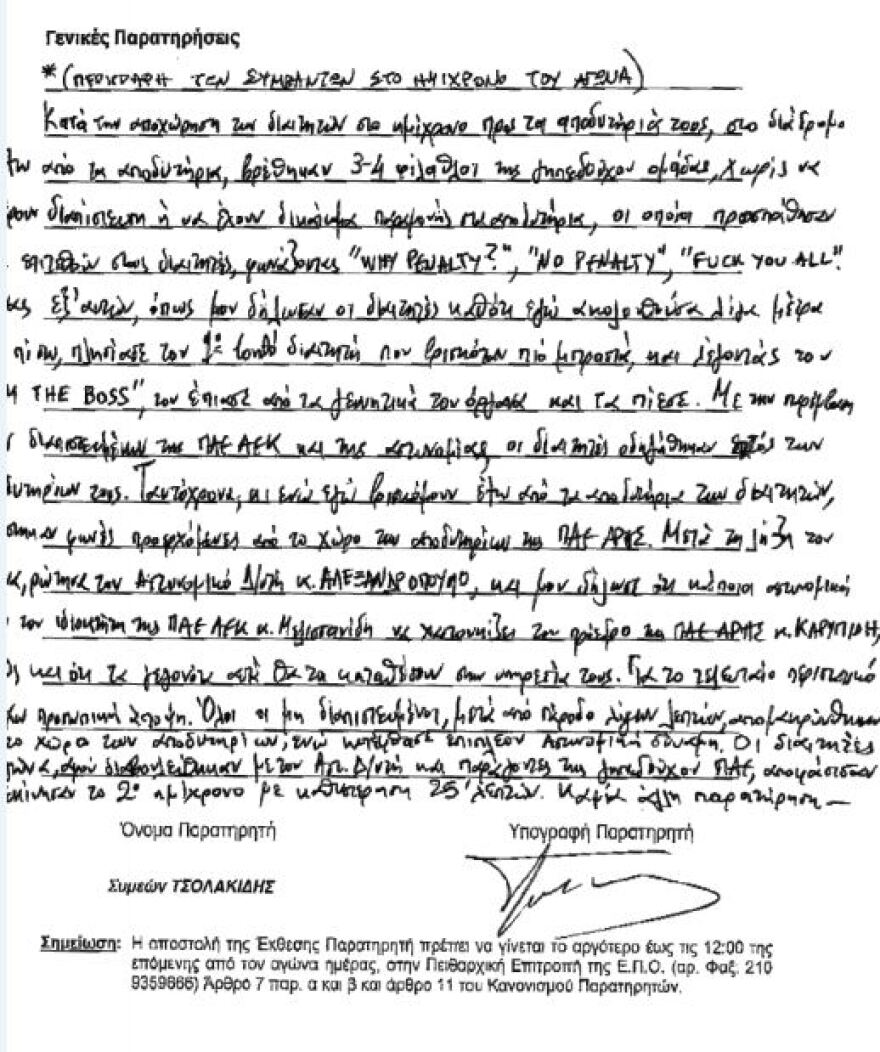 Γενικές Παρατηρήσεις
*(ΠΕΡΙΓΡΑΦΗ ΤΩΝ ΣΥΜΒΑΝΤΩΝ ΣΤΟ ΗΜΙΧΡΟΝΟ ΤΟΥ ΑΓΩΝΑ)
Κατά την αποχώρηση των διαιτητών στο ημίχρονο προς τα αποδυτήριά τους, στο διάδρομο
έξω από τα αποδυτήρια, βρέθηκαν 3-4 φίλαθλοι της γηπεδούχου ομάδας, χωρίς να
διαπίστευση ή να έχουν δικαίωμα παραμονής στα αποδυτήρια, οι οποίοι προσπάθησαν
επιτεθούν στους διαιτητές, φωνάζοντας "WHY PENALTY?", "NO PENALTY", "FUCK YOU ALL".
εξ' αυτών, όπως μου δήλωσαν οι διαιτητές καθότι εγώ ακολουθούσα λίγα μέτρα
πίσω, πλησίασε τον 1º βοηθό διαιτητή που βρισκόταν πιο μπροστά, και λέγοντάς του
THE BOSS", τον έπιασε από τα γεννητικά του όργανα και τα πίεσε. Με την παρέμβαση
διαπιστευμένων της ΠΑΕ ΑΕΚ και της αστυνομίας, οι διαιτητές οδηγήθηκαν εντός των
δυτηρίων τους. Ταυτόχρονα, κι ενώ εγώ βρισκόμουν έξω από τα αποδυτήρια των διαιτητών,
φωνές προερχόμενες από το χώρο των αποδυτηρίων της ΠΑΕ ΑΡΗΣ. Μετά τη λήξη του
ρώτησα τον Αστυνομικό Δ/ντή κ. ΑΛΕΞΑΝΔΡΟΠΟΥΛΟ, και μου δήλωσε ότι κάποιοι αστυνομικοί
τον ιδιοκτήτη της ΠΑΕ ΑΕΚ κ. Μελισσανίδη να χαστουκίζει τον πρόεδρο της ΠΑΕ ΑΡΗΣ κ. ΚΑΡΥΠΙΔΗ,
και ότι τα γεγονότα αυτά θα τα καταθέσουν στην υπηρεσία τους. Για το τελευταίο περιστατικό
προσωπική άποψη. Όλοι οι μη διαπιστευμένοι, μετά από πάροδο λίγων λεπτών, απομακρύνθηκαν
το χώρο των αποδυτηρίων, ενώ κατέφθασε επιπλέον Αστυνομική δύναμη. Οι διαιτητές
αφού διαβουλεύθηκαν με τον Αστ. Δ/ντή και παράγοντες της γηπεδούχου ΠΑΕ, αποφάσισαν
το 2º ημίχρονο με καθυστέρηση 25' λεπτών. Καμία άλλη παρατήρηση —
Όνομα Παρατηρητή Υπογραφή Παρατηρητή
Συμεών ΤΣΟΛΑΚΙΔΗΣ
Σημείωση: Η αποστολή της Έκθεσης Παρατηρητή πρέπει να γίνεται το αργότερο έως τις 12:00 της
επόμενης από τον αγώνα ημέρας, στην Πειθαρχική Επιτροπή της Ε.Π.Ο. (αρ. Φαξ. 210
9359666) Άρθρο 7 παρ. α και β και άρθρο 11 του Κανονισμού Παρατηρητών.